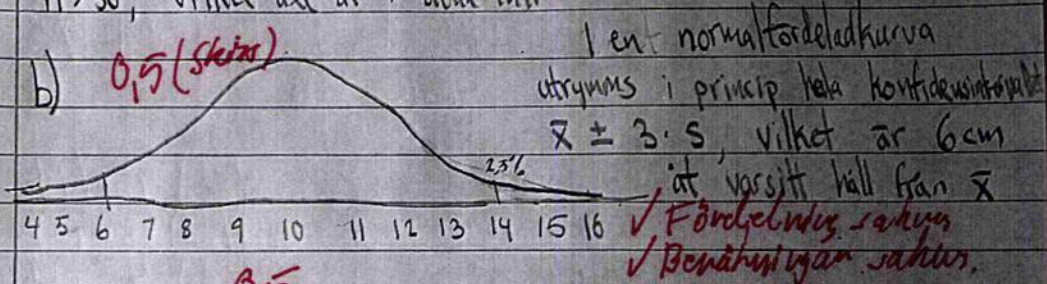 b) 0,5 (Skiss)
I en normalfördeladkurva
utryms i princip hela konfidensintervallet
x̄ ± 3 · s, vilket är 6 cm
åt varsitt håll från x̄
2,5%
4 5 6 7 8 9 10 11 12 13 14 15 16
✓ Fördelning saknas
✓ Benämningar saknas.